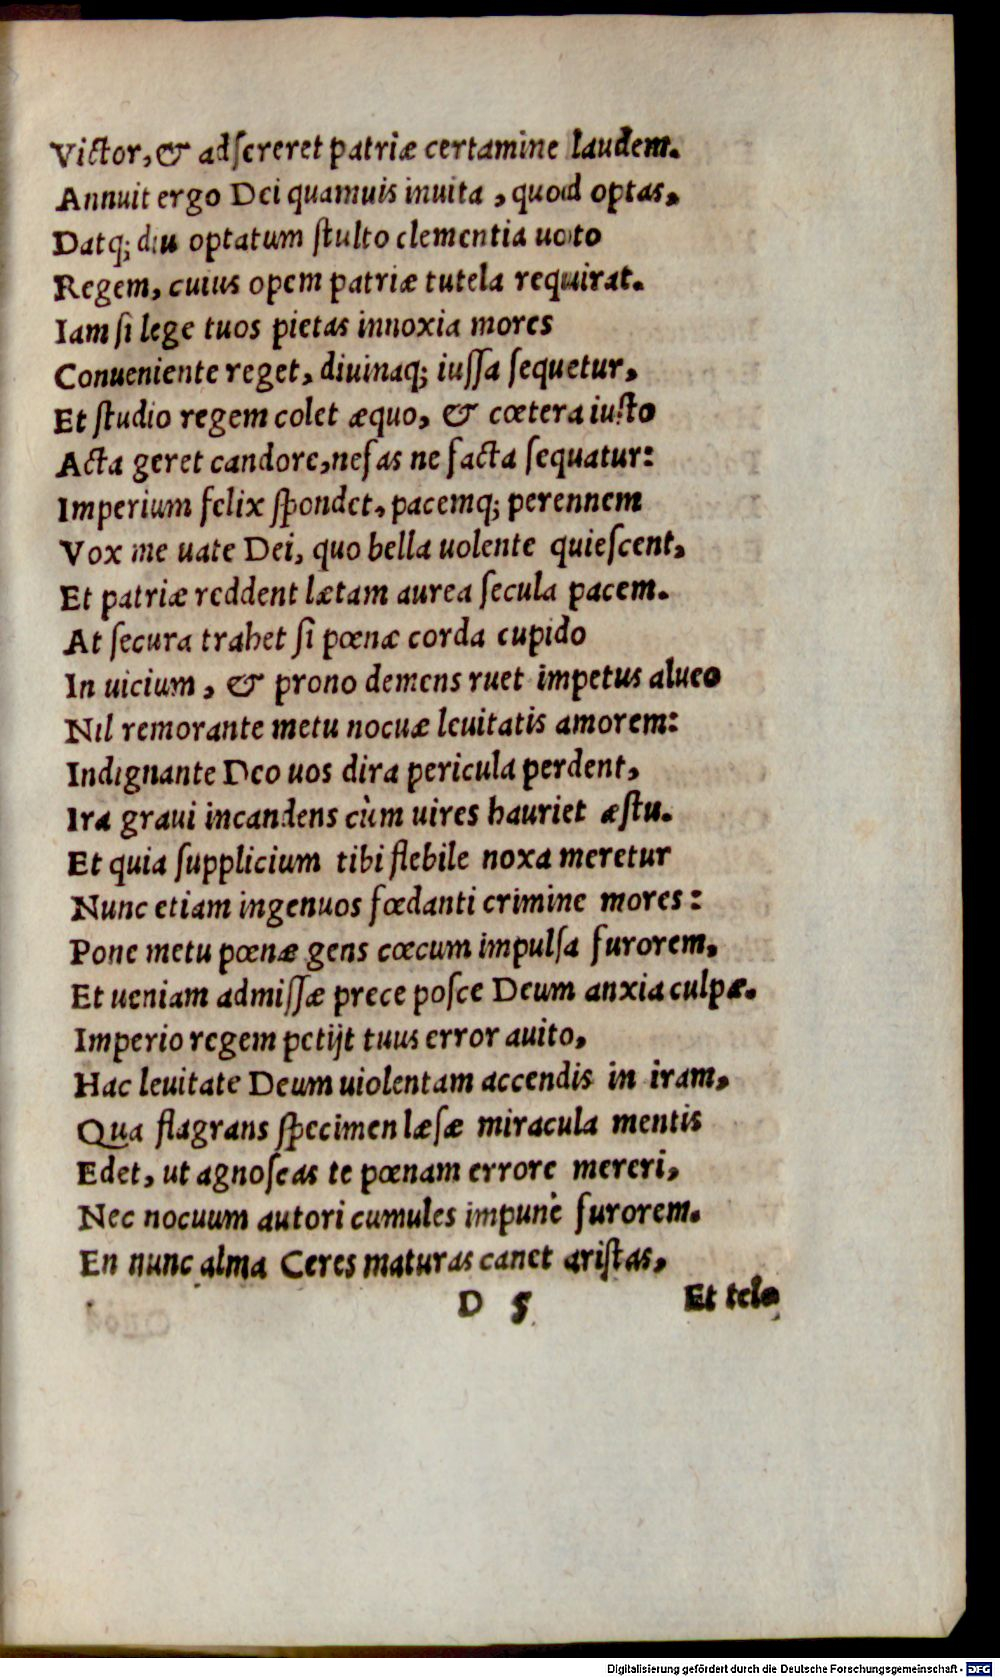 Victor, & adſcreret patriæ certamine laudem.
Annuit ergo Dei quamuis inuita, quod optas,
Datq; diu optatum ſtulto clementia uoto
Regem, cuius opem patriæ tutela requirat.
Iam ſi lege tuos pietas innoxia mores
Conueniente reget, diuinaq; iuſſa ſequetur,
Et ſtudio regem colet æquo, & cœtera iuſto
Acta geret candore, nefas ne facta ſequatur:
Imperium felix ſpondet, pacemq; perennem
Vox me uate Dei, quo bella uolente quieſcent,
Et patriæ reddent lætam aurea ſecula pacem.
At ſecura trahet ſi pœnæ corda cupido
In uicium, & prono demens ruet impetus alueo
Nil remorante metu nocuæ leuitatis amorem:
Indignante Deo uos dira pericula perdent,
Ira graui incandens cùm uires hauriet æſtu.
Et quia ſupplicium tibi flebile noxa meretur
Nunc etiam ingenuos fœdanti crimine mores:
Pone metu pœnæ gens cœcum impulſa furorem,
Et ueniam admiſſæ prece poſce Deum anxia culpæ.
Imperio regem petijt tuus error auito,
Hac leuitate Deum uiolentam accendis in iram,
Qua flagrans ſpecimen læſæ miracula mentis
Edet, ut agnoſcas te pœnam errore mereri,
Nec nocuum autori cumules impunè furorem.
En nunc alma Ceres maturas canet ariſtas,
D 5 Et tela
Digitalisierung gefördert durch die Deutsche Forschungsgemeinschaft - DFG